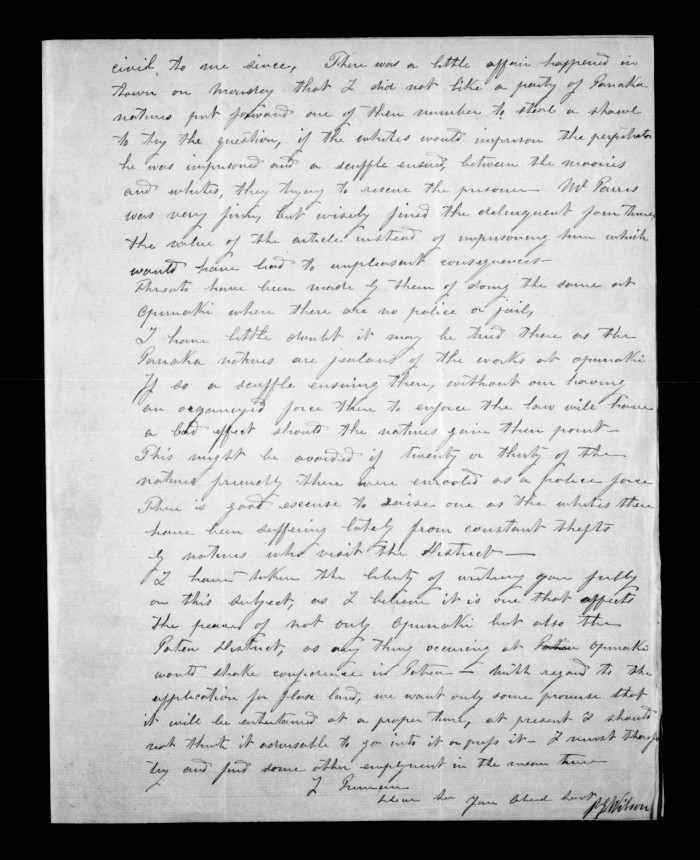 civil, to me since, There was a little affair happened in
town on monday that I did not like a party of Tanaka
natives put forward one of their number to steal a shawl
to try the question, if the whites would imprison the perpetrator
he was imprisoned and a scuffle ensued, between the maoris
and whites, they trying to rescue the prisoner Mr Parris
was very firm, but wisely fined the delinquent four times
the value of the article instead of imprisoning him which
would have led to unpleasant consequences—
Threats have been made by them of doing the same at
Opunaki where there are no police or jail,
I have little doubt it may be tried there as the
Tanaka natives are jealous of the works at opunaki
If so a scuffle ensuing then, without our having
an organized force there to enforce the law will have
a bad effect should the natives gain their point—
This might be avoided if twenty or thirty of the
natives friendly there were enrolled as a police force
There is good excuse to raise one as the whites there
have been suffering lately from constant thefts
by natives who visit the District—
I have taken the liberty of writing you fully
on this subject, as I believe it is one that affects
the peace of not only Opunaki but also the
Patea District, as any thing occuring at Patea Opunaki
would shake confidence in Patea — With regard to the
application for flax land, we want only some promise that
it will be entertained at a proper time, at present I should
not think it advisable to go into it or press it— I must
try and find some other employment in the mean time
I Remain
Dear Sir Your Obed Servt
Wilson